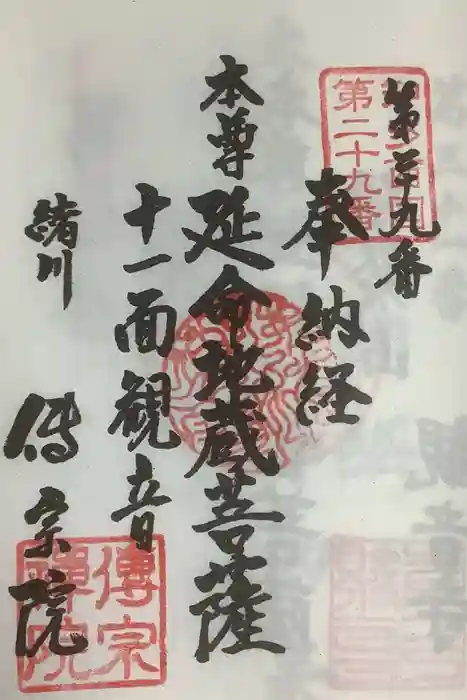 第二十九番
奉納経
本尊 延命地蔵菩薩
十一面観音
緒川 傳宗院
第二十九番
傳宗禅院